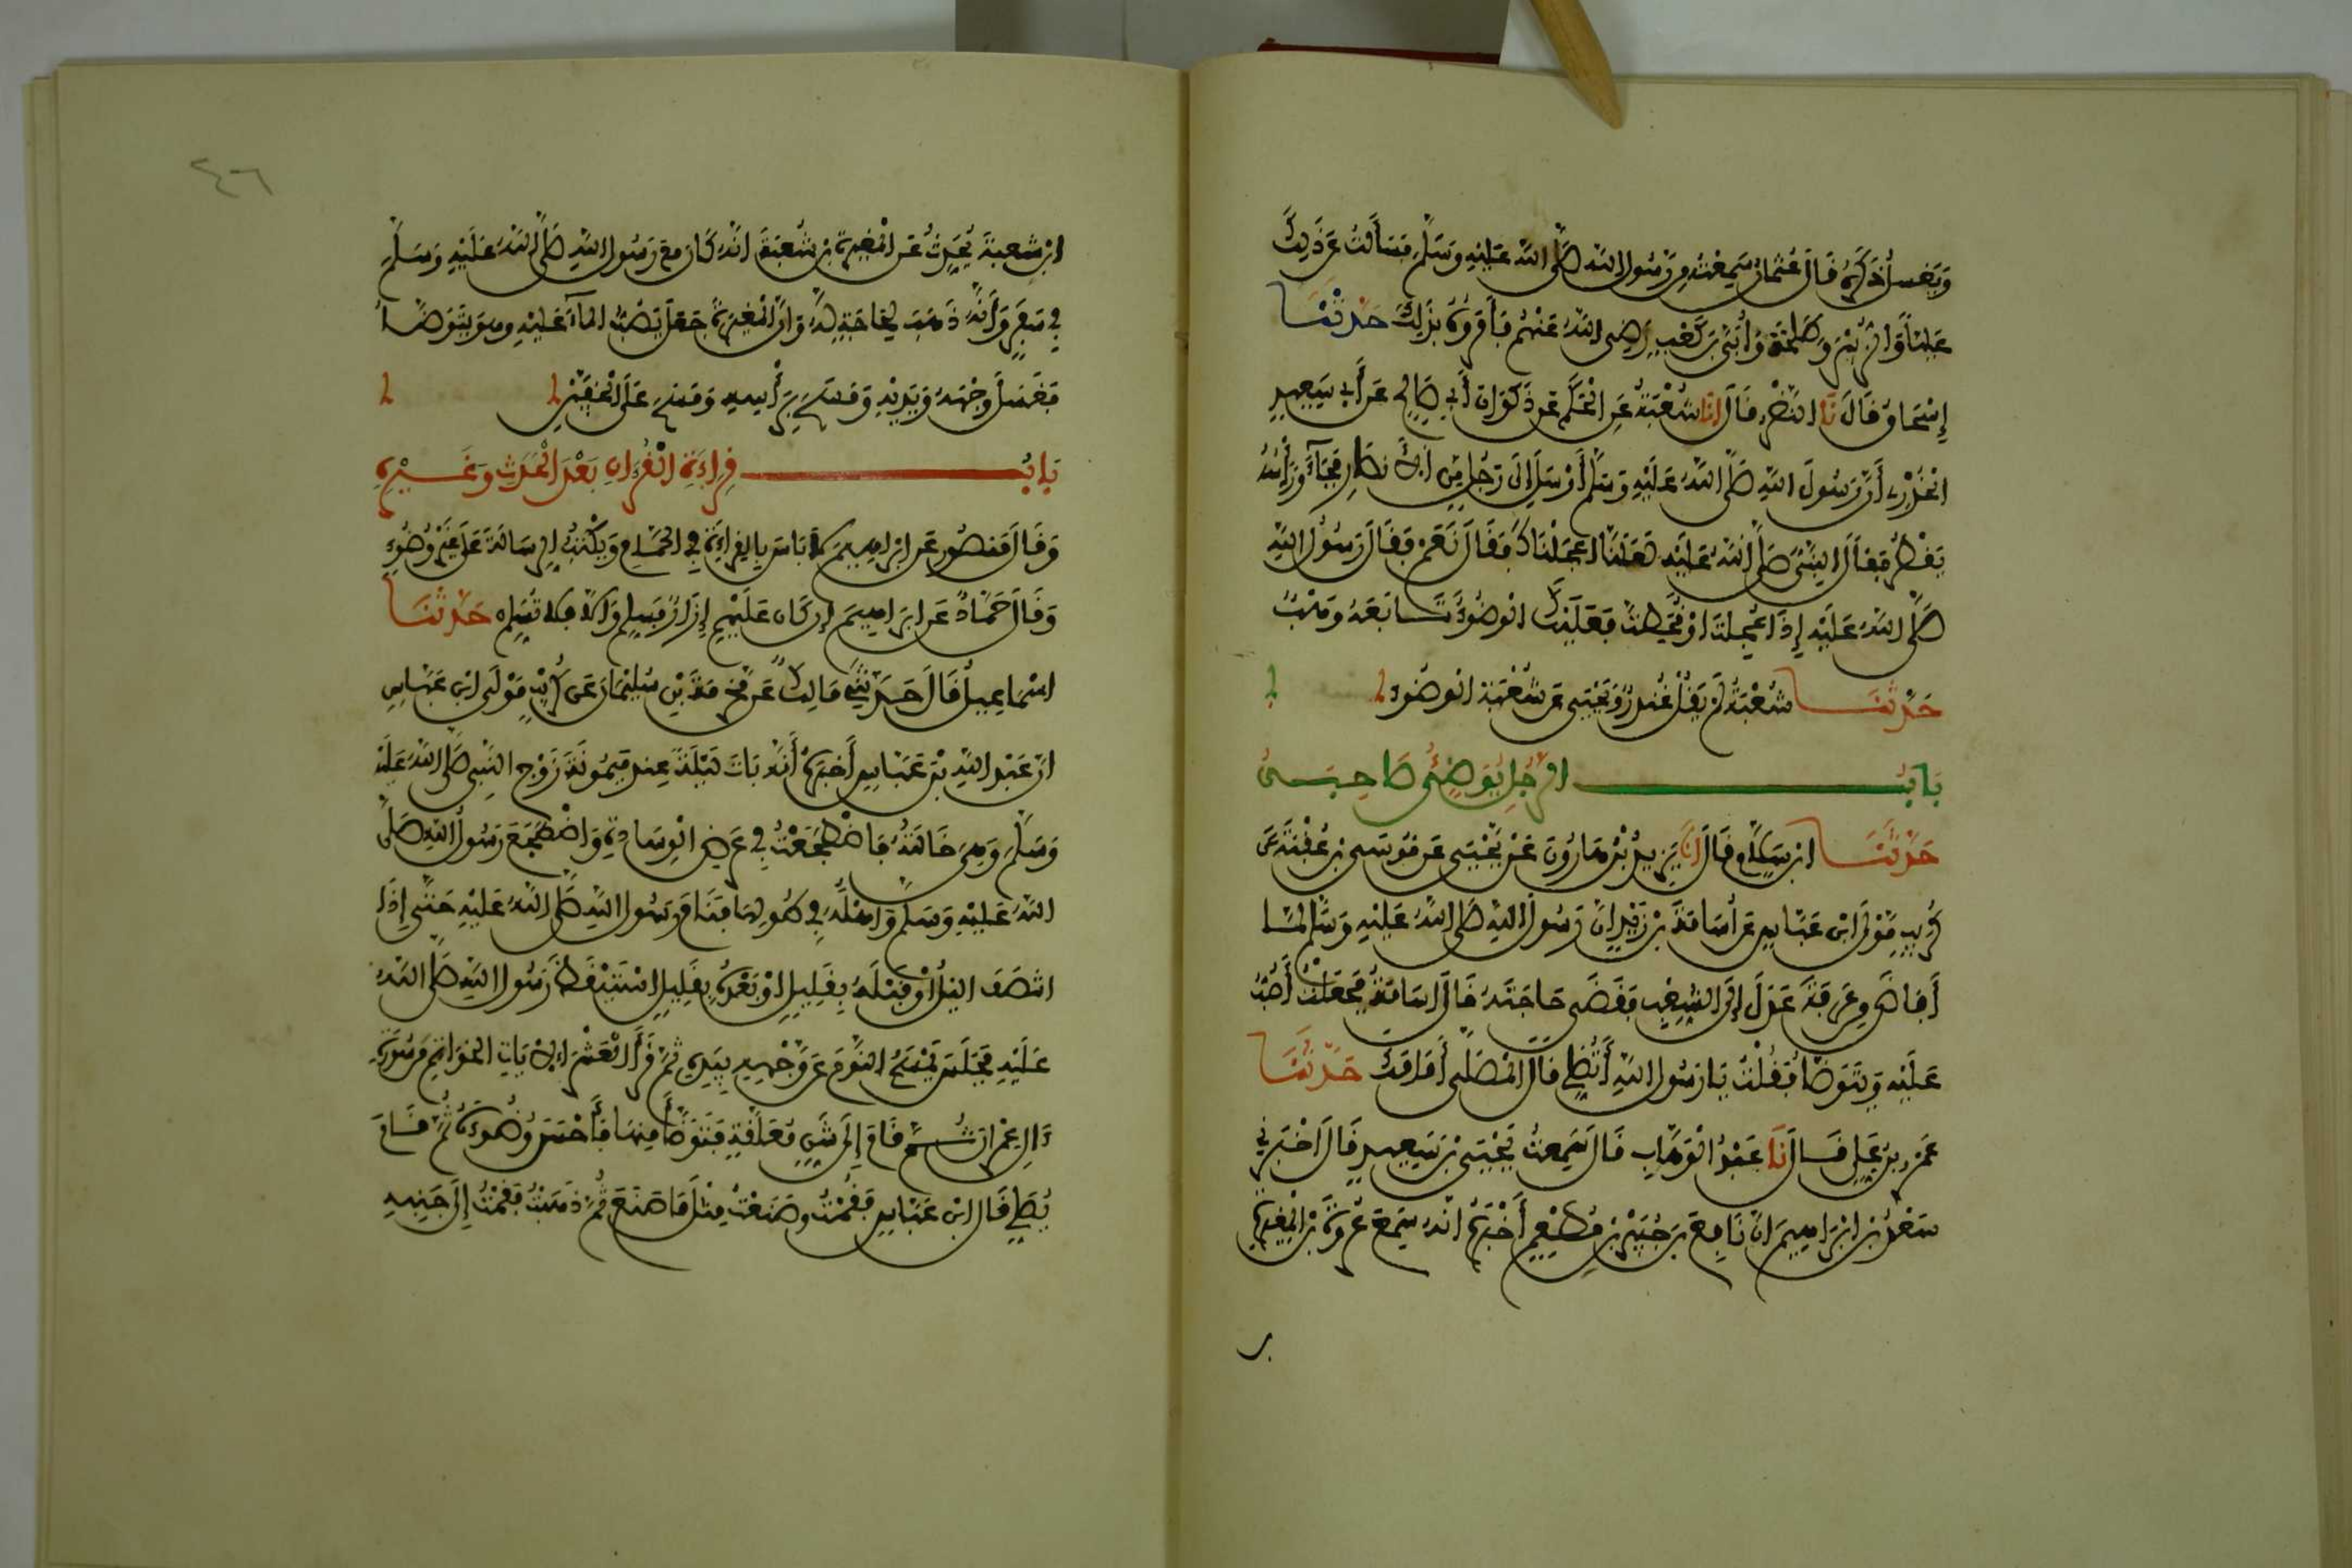 وَيَغْسِلُ ذَكَرَهُ قَالَ عُثْمَانُ سَمِعْتُهُ مِن رَّسُولِ اللهِ صَلَّى اللهُ عَلَيْهِ وَسَلَّمَ فَسَأَلْتُ عَن ذَلِكَ
عَلِيّاً وَالزُّبَيْرَ وَطَلْحَةَ وَأُبَيَّ بْنَ كَعْبٍ رَضِيَ اللهُ عَنْهُم فَأَمَرُوهُ بِذَلِكَ حَدَّثَنَا
إِسْحَاقُ قَالَ نَا النَّضْرُ قَالَ انَا شُعْبَةُ عَنِ الْحَكَمِ عَن ذَكْوَانَ أَبِي صَالِحٍ عَن أَبِي سَعِيدٍ
الْخُدْرِيِّ أَنَّ رَسُولَ اللهِ صَلَّى اللهُ عَلَيْهِ وَسَلَّمَ أَرْسَلَ إِلَى رَجُلٍ مِّنَ الأَنْصَارِ فَجَاءَ وَرَأْسُهُ
يَقْطُرُ فَقَالَ النَّبِيُّ صَلَّى اللهُ عَلَيْهِ لَعَلَّنَا أَعْجَلْنَاكَ فَقَالَ نَعَمْ فَقَالَ رَسُولُ اللهِ
صَلَّى اللهُ عَلَيْهِ إِذَا أُعْجِلْتَ أَوْ قُحِطْتَ فَعَلَيْكَ الْوُضُوءُ تَابَعَهُ وَهْبٌ
حَدَّثَنَا شُعْبَةُ لَمْ يَقُلْ غُنْدَرٌ وَيَحْيَى عَن شُعْبَةَ الْوُضُوءُ
بَابُ الرَّجُلِ يُوَضِّئُ صَاحِبَهُ
حَدَّثَنَا ابْنُ سَلَامٍ قَالَ انَا يَزِيدُ بْنُ هَارُونَ عَنْ يَحْيَى عَن مُوسَى بْنِ عُقْبَةَ عَن
كُرَيْبٍ مَوْلَى ابْنِ عَبَّاسٍ عَن أُسَامَةَ بْنِ زَيْدٍ أَنَّ رَسُولَ اللهِ صَلَّى اللهُ عَلَيْهِ وَسَلَّمَ لَمَّا
أَفَاضَ مِن عَرَفَةَ عَدَلَ إِلَى الشِّعْبِ فَقَضَى حَاجَتَهُ قَالَ أُسَامَةُ فَجَعَلْتُ أَصُبُّ
عَلَيْهِ وَيَتَوَضَّأُ فَقُلْتُ يَا رَسُولَ اللهِ أَتُصَلِّي قَالَ الْمُصَلَّى أَمَامَكَ حَدَّثَنَا
عَمْرُو بْنُ عَلِيٍّ قَالَ نَا عَبْدُ الْوَهَّابِ قَالَ سَمِعْتُ يَحْيَى بْنَ سَعِيدٍ قَالَ أَخْبَرَنِي
سَعْدُ بْنُ إِبْرَاهِيمَ أَنَّ نَافِعَ بْنَ جُبَيْرِ بْنِ مُطْعِمٍ أَخْبَرَهُ أَنَّهُ سَمِعَ عُرْوَةَ بْنَ الْمُغِيرَةِ
٢٤٦
ابْنِ شُعْبَةَ يُحَدِّثُ عَنِ الْمُغِيرَةِ بْنِ شُعْبَةَ أَنَّهُ كَانَ مَعَ رَسُولِ اللهِ صَلَّى اللهُ عَلَيْهِ وَسَلَّمَ
فِي سَفَرٍ وَأَنَّهُ ذَهَبَ لِحَاجَةٍ لَهُ وَأَنَّ الْمُغِيرَةَ جَعَلَ يَصُبُّ الْمَاءَ عَلَيْهِ وَهُوَ يَتَوَضَّأُ
فَغَسَلَ وَجْهَهُ وَيَدَيْهِ وَمَسَحَ بِرَأْسِهِ وَمَسَحَ عَلَى الْخُفَّيْنِ
بَابُ قِرَاءَةِ الْقُرْءَانِ بَعْدَ الْحَدَثِ وَغَيْرِهِ
وَقَالَ مَنْصُورٌ عَن إِبْرَاهِيمَ لَا بَأْسَ بِالْقِرَاءَةِ فِي الْحَمَّامِ وَيَكْتُبُ الرِّسَالَةَ عَلَى غَيْرِ وُضُوءٍ
وَقَالَ حَمَّادٌ عَن إِبْرَاهِيمَ إِن كَانَ عَلَيْهِمْ إِزَارٌ فَسَلِّمْ وَإِلَّا فَلَا تُسَلِّمْ حَدَّثَنَا
إِسْمَاعِيلُ قَالَ حَدَّثَنِي مَالِكٌ عَن مَّخْرَمَةَ بْنِ سُلَيْمَانَ عَن كُرَيْبٍ مَوْلَى ابْنِ عَبَّاسٍ
أَنَّ عَبْدَ اللهِ بْنَ عَبَّاسٍ أَخْبَرَهُ أَنَّهُ بَاتَ لَيْلَةً عِنْدَ مَيْمُونَةَ زَوْجِ النَّبِيِّ صَلَّى اللهُ عَلَيْهِ
وَسَلَّمَ وَهِيَ خَالَتُهُ فَاضْطَجَعْتُ فِي عَرْضِ الْوِسَادَةِ وَاضْطَجَعَ رَسُولُ اللهِ صَلَّى
اللهُ عَلَيْهِ وَسَلَّمَ وَأَهْلُهُ فِي طُولِهَا فَنَامَ رَسُولُ اللهِ صَلَّى اللهُ عَلَيْهِ حَتَّى إِذَا
انْتَصَفَ اللَّيْلُ أَوْ قَبْلَهُ بِقَلِيلٍ أَوْ بَعْدَهُ بِقَلِيلٍ اسْتَيْقَظَ رَسُولُ اللهِ صَلَّى اللهُ
عَلَيْهِ فَجَلَسَ يَمْسَحُ النَّوْمَ عَن وَجْهِهِ بِيَدِهِ ثُمَّ قَرَأَ الْعَشْرَ الْآيَاتِ الْخَوَاتِمَ مِن سُورَةِ
ءَالِ عِمْرَانَ ثُمَّ قَامَ إِلَى شَنٍّ مُعَلَّقَةٍ فَتَوَضَّأَ مِنْهَا فَأَحْسَنَ وُضُوءَهُ ثُمَّ قَامَ
يُصَلِّي قَالَ ابْنُ عَبَّاسٍ فَقُمْتُ وَصَنَعْتُ مِثْلَ مَا صَنَعَ ثُمَّ ذَهَبْتُ فَقُمْتُ إِلَى جَنْبِهِ